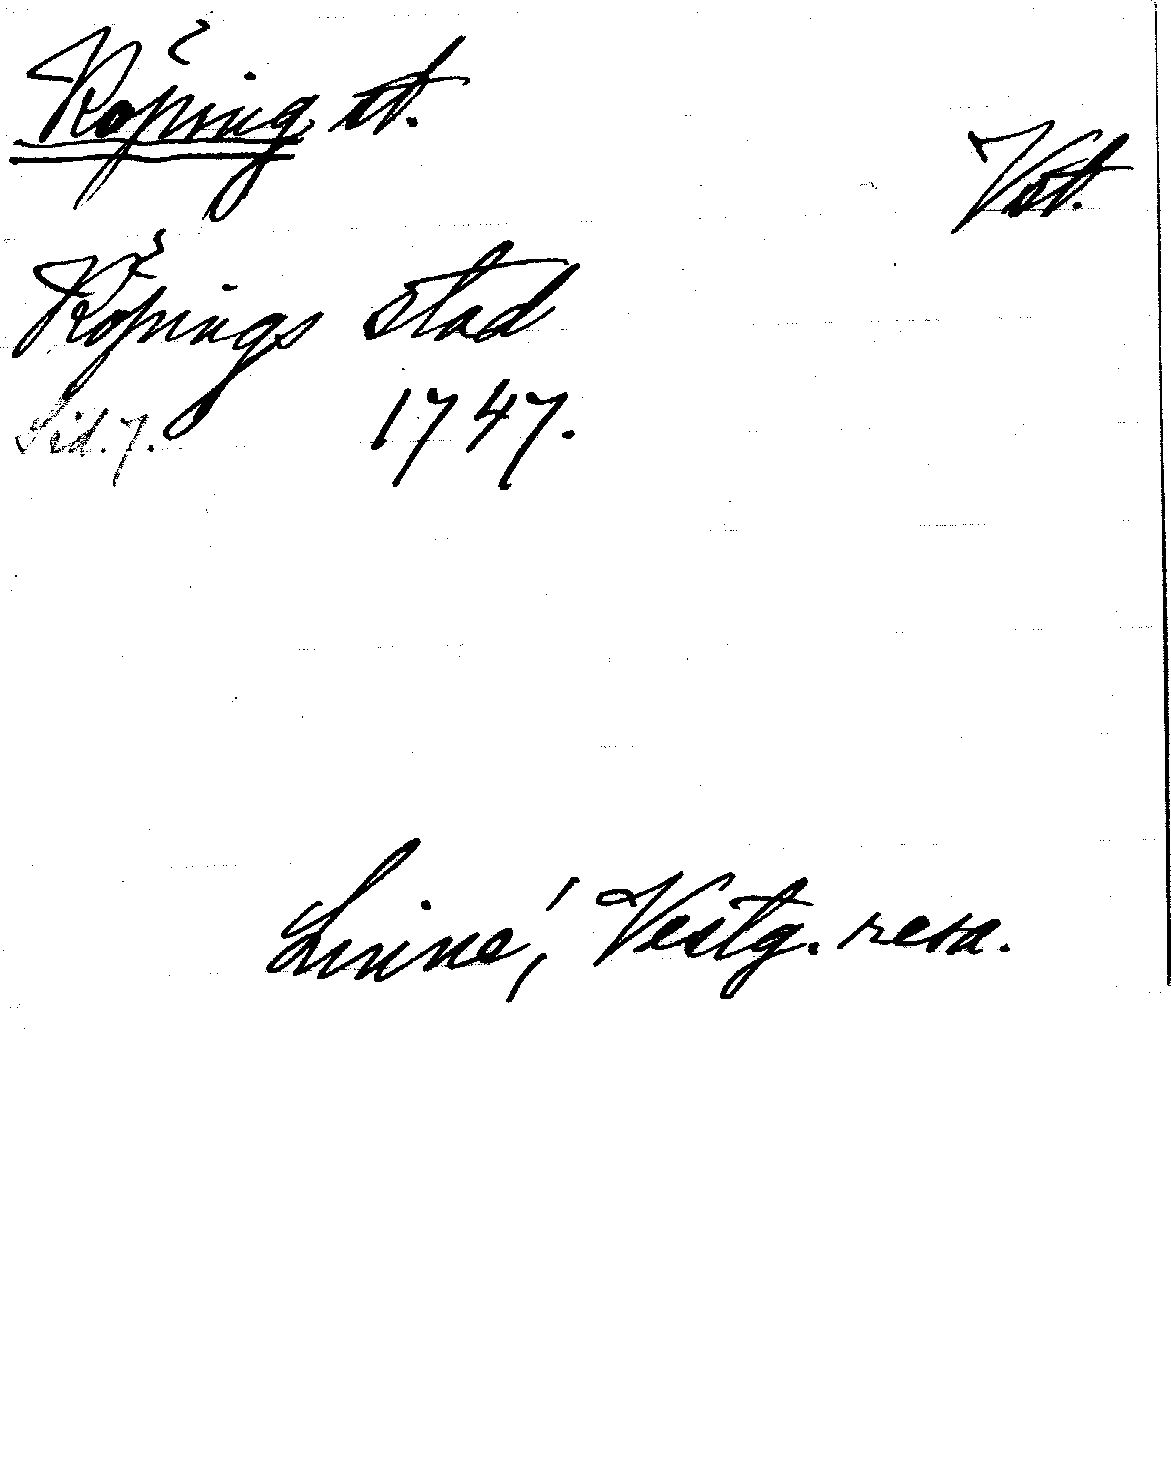 Köping, st.
Vst.
Köpings stad
Sid. 7. 1747.
Linné, Vestg. resa.